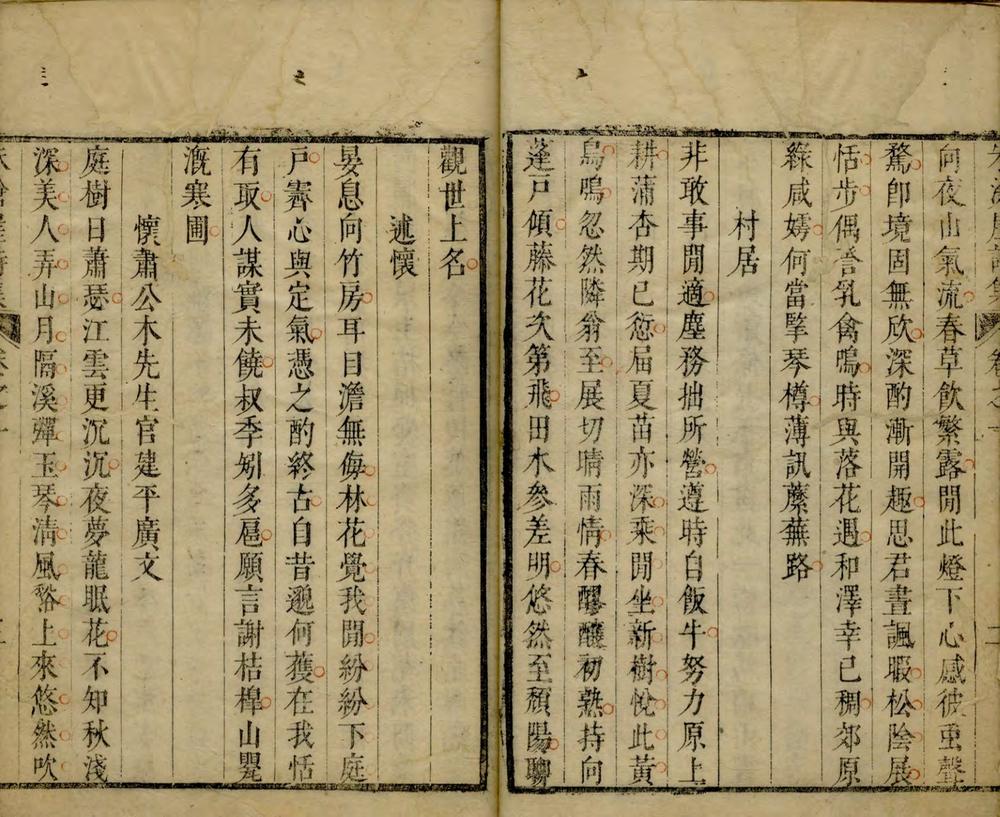 向夜山氣流春草飲繁露閒此燈下心感彼䖝聲
騖卽境固無欣深酌漸開趣思君晝諷暇松陰展
恬步偶啓乳禽鳴時與落花遇和澤幸已稠郊原
綠咸嫮何當擥琴樽薄訊蘼蕪路
村居
非敢事閒適塵務拙所營遵時自飯牛努力原上
耕蒲杏期已愆届夏苗亦深乘閒坐新樹悅此黃
鳥鳴忽然隣翁至展切晴雨情春醪釀初熟持向
蓬戸傾藤花次第飛田水參差明悠然至頹陽聊
觀世上名
述懷
晏息向竹房耳目澹無侮林花覺我閒紛紛下庭
戸霽心與定氣憑之酌終古自昔邈何獲在我恬
有取人謀實未饒叔季矧多扈願言謝桔槹山罌
漑寒圃
懷肅公木先生官建平廣文
庭樹日蕭瑟江雲更沉沉夜夢龍眠花不知秋淺
深美人弄山月隔溪彈玉琴清風谿上來悠然吹